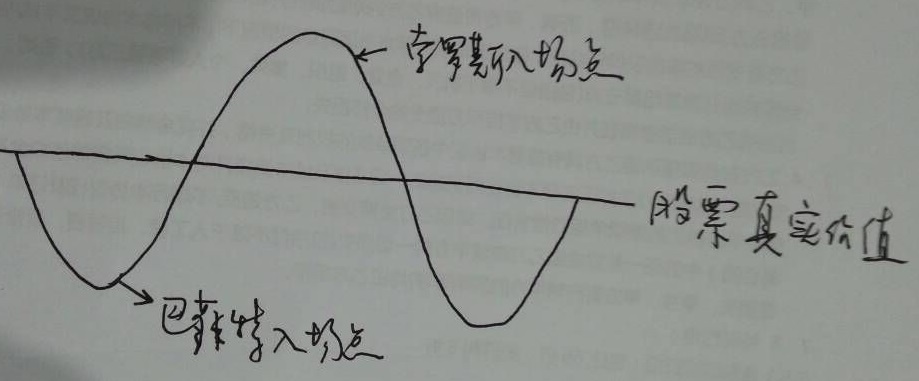 索罗斯入场点
股票真实价值
巴菲特入场点